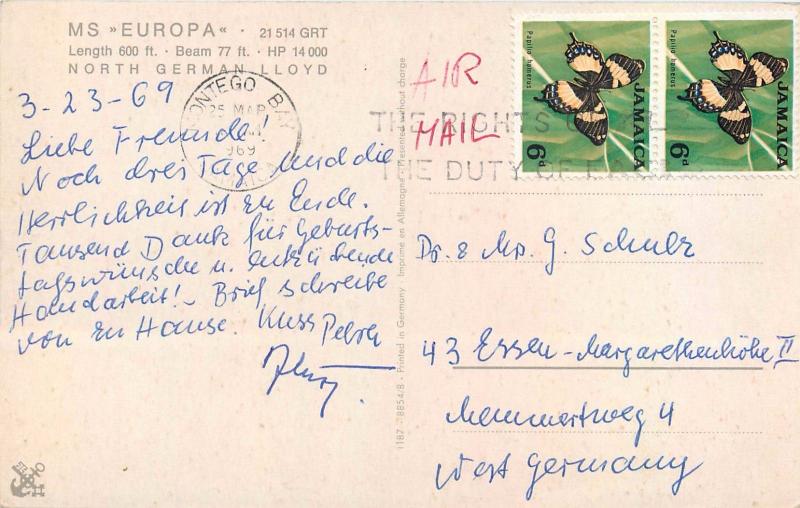 MS »EUROPA« · 21 514 GRT
Length 600 ft. · Beam 77 ft. · HP 14 000
NORTH GERMAN LLOYD
3-23-69
Liebe Freunde!
Noch drei Tage und die
Herrlichkeit ist zu Ende.
Tausend Dank für Geburts-
tagswünsche u. entzückende
Handarbeit! - Brief schreibe
von zu Hause. Kuss Petra
MONTEGO BAY
25 MAR
1969
JAMAICA
1187 · 8854/8 - Printed in Germany Imprimé en Allemagne - Presented without charge
AIR
MAIL
THE RIGHTS
THE DUTY OF
Papilio homerus
JAMAICA
6d
Papilio homerus
JAMAICA
6d
Dr. & Mrs. G. Schulz
43 Essen-Margarethenhöhe II
4
West Germany